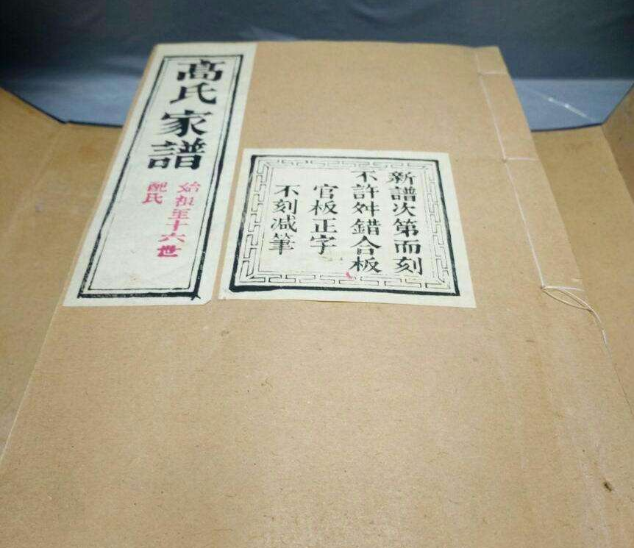 高氏家譜
始祖至十六世
配氏
新譜次第而刻
不許舛錯合板
官板正字
不刻减筆